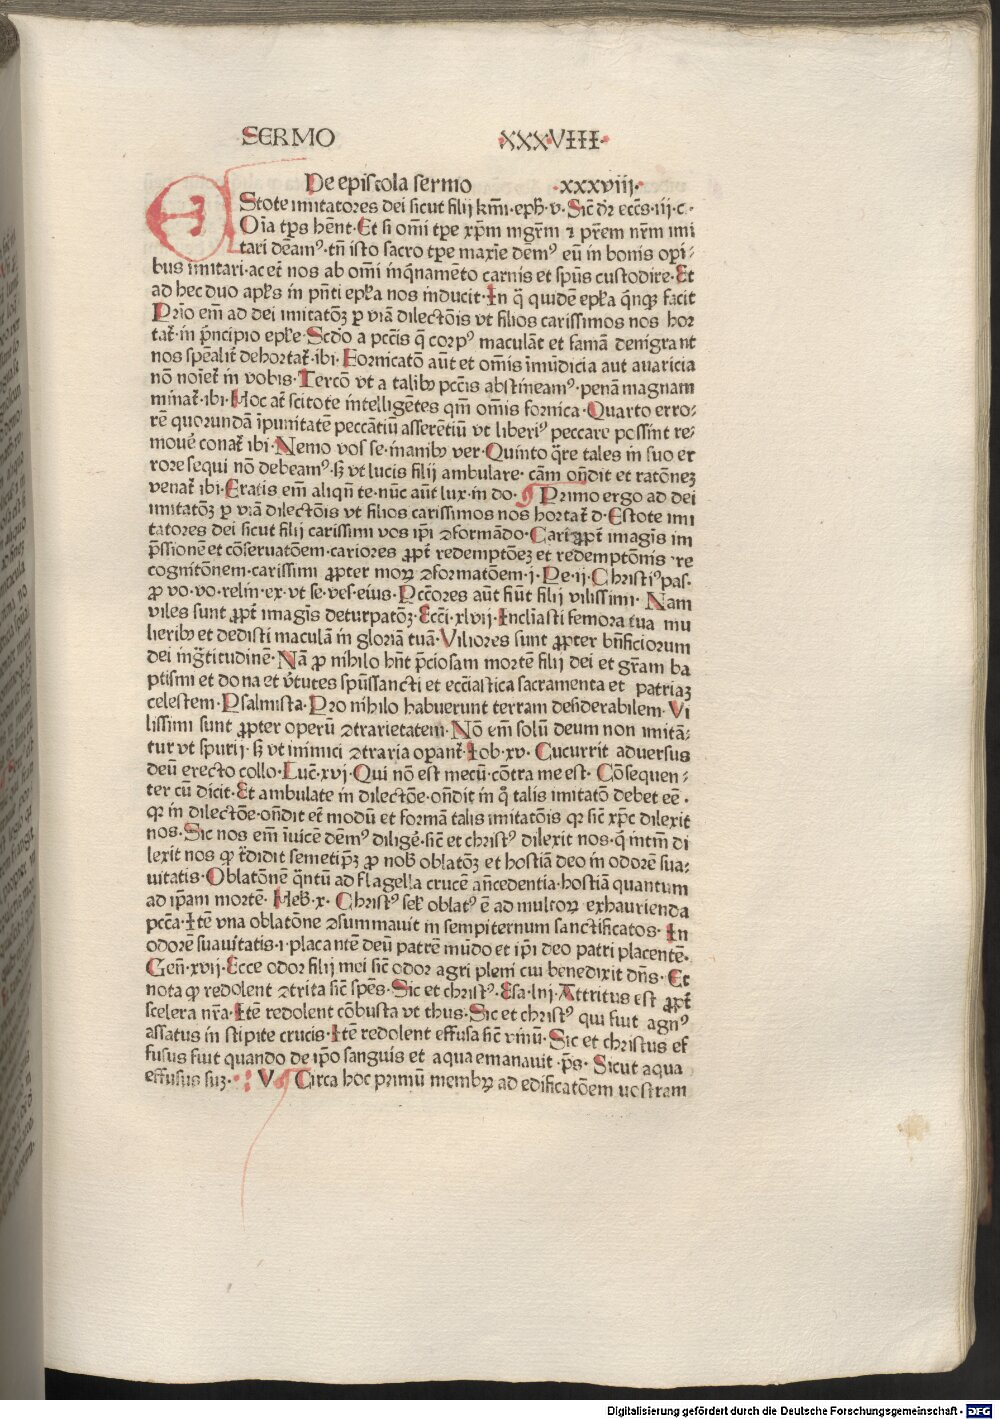 SERMO ·XXXVIII·
De epistola sermo ·xxxviij·
EStote imitatores dei sicut filij kmī·eph̄·v· Sic̄ dr̄ ecc̄s·iij·c·
Oīa tp̄s hēnt·Et si omī tp̄e xp̄m mgr̄m ⁊ pr̄em nr̄m imi
tari deam⁹·tn̄ isto sacro tp̄e maxīe dem⁹ eū in bonis opi-
bus imitari·ac et̄ nos ab omī inq̄namēto carnis et sp̄us custodire·Et
ad hec duo apl̄s in pn̄ti epl̄a nos inducit·In q̄ quidē epl̄a q̄nqꝫ facit
Prīo em̄ ad dei imitatōꝫ ꝑ viā dilectōis vt filios carissimos nos hor
tat̄·in p̄ncipio epl̄e·Scd̄o a pcc̄is q̄ corp⁹ maculāt et famā denigrant
nos spēalit̄ dehortat̄·ibi·Fornicatō aūt et om̄is īmūdicia aut auaricia
nō noīet̄ in vobis·Tercō vt a talibꝫ pcc̄is abstineam⁹·penā magnam
minat̄·ibi·Hoc at̄ scitote intelligētes qm̄ om̄is fornica·Quarto erro-
rē quorundā īpunitatē peccātiū asserētiū vt liberi⁹ peccare possint re-
mouē conat̄ ibi·Nemo vos se·inanibꝫ ver·Quinto q̄re tales in suo er
rore sequi nō debeam⁹·sꝫ vt lucis filij ambulare·cām on̄dit et ratōneꝫ
venat̄ ibi·Eratis em̄ aliqn̄ te·nūc aūt lux·in do·¶ Primo ergo ad dei
imitatōꝫ ꝑ viā dilectōis vt filios carissimos nos hortat̄ d·Estote imi
tatores dei sicut filij carissimi vos ip̄i ꝯformādo·Cari ꝓpt̄ imagīs im
p̄ssionē et cōseruatōem·cariores ꝓpt̄ redemptōeꝫ et redemptōnis re
cognitōnem·carissimi ꝓpter moꝝ ꝯformatōem·j·Pe·ij·Christ⁹ pas·
ꝓ vo·vo·relin̄·ex·vt se·ves·eius·Pcc̄ores aūt fiūt filij vilissimi·Nam
viles sunt ꝓpt̄ imagīs deturpatōꝫ·Ecc̄i·xlvij·Inclīasti femora tua mu
lieribꝫ et dedisti maculā in gloriā tuā·Viliores sunt ꝓpter bn̄ficiorum
dei īgr̄titudinē·Nā ꝓ nihilo hn̄t p̄ciosam mortē filij dei et gr̄am ba
ptismi et dona et v̄tutes sp̄ussancti et eccl̄iastica sacramenta et patriaꝫ
celestem·Psalmista·Pro nihilo habuerunt terram desiderabilem·Vi
lissimi sunt ꝓpter operū ꝯtrarietatem·Nō em̄ solū deum non imitā-
tur vt spurij·sꝫ vt inimici ꝯtraria oꝑant̄·Iob·xv·Cucurrit aduersus
deū erecto collo·Luc̄·xvj·Qui nō est mecū·cōtra me est·Cōsequen-
ter cū dicit·Et ambulate in dilectōe·on̄dit in q̊ talis imitatō debet eē·
qꝛ in dilectōe·on̄dit et̄ modū et formā talis imitatōis qꝛ sic̄ xp̄c dilexit
nos·Sic nos em̄ īuicē dēm⁹ diligē·sic̄ et christ⁹ dilexit nos·q̄ intm̄ di
lexit nos ꝙ t̄didit semetip̄ꝫ ꝓ nob̄ oblatōꝫ et hostiā deo in odorē sua-
uitatis·Oblatōnē q̄ntū ad flagella crucē an̄cedentia·hostiā quantum
ad ip̄am mortē·Heb̄·x·Christ⁹ sel̄ oblat⁹ ē ad multoꝝ exhaurienda
pcc̄a·Itē vna oblatōne ꝯsummauit in sempiternum sanctificatos·In
odorē suauitatis·i·placantē deū patrē mūdo et ip̄i deo patri placentē·
Gen̄·xvij·Ecce odor filij mei sic̄ odor agri pleni cui benedixit dn̄s·Et
nota ꝙ redolent ꝯtrita sic̄ spēs·Sic et christ⁹·Esa·liij·Attritus est ꝓpt̄
scelera nr̄a·Itē redolent cōbusta vt thus·Sic et christ⁹ qui fuit agn⁹
assatus in stipite crucis·Itē redolent effusa sic̄ vinū·Sic et christus ef
fusus fuit quando de ip̄o sanguis et aqua emanauit·p̄s·Sicut aqua
effusus suꝫ· V ¶ Circa hoc primū membꝝ ad edificatōem uostram